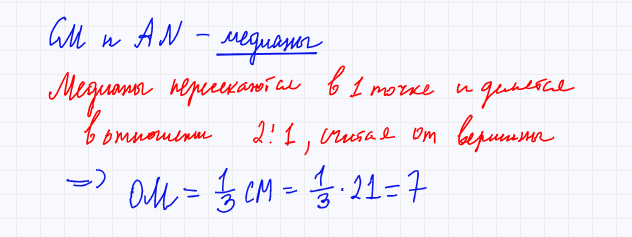 CM и AN – медианы
Медианы пересекаются в 1 точке и делятся
в отношении 2:1, считая от вершины
=> OM = 1/3 CM = 1/3 · 21 = 7